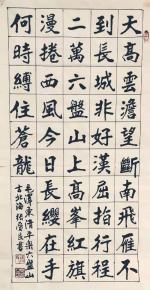 天高雲澹望斷南飛雁不
到長城非好漢屈指行程
二萬六盤山上高峰紅旗
漫捲西風今日長纓在手
何時縛住蒼龍
毛澤東清平樂六盤山
古北海張民書